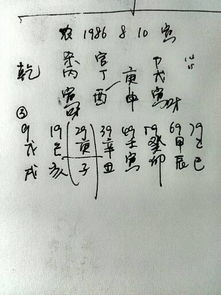 农 1986 8 10 寅
乾 杀丙寅 官丁酉 庚申 戊寅
③
9 19 29 39 49 59 69 79
戊 己 庚 辛 壬 癸 甲 乙
戌 亥 子 丑 寅 卯 辰 巳